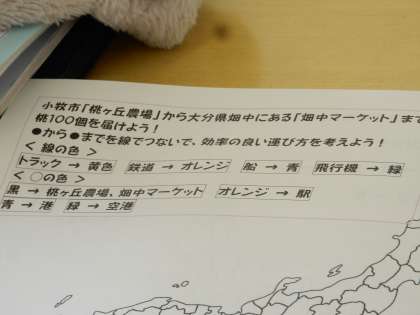 小牧市「桃ヶ丘農場」から大分県畑中にある「畑中マーケット」まで
桃100個を届けよう！
●から●までを線でつないで、効率の良い運び方を考えよう！
< 線の色 >
トラック → 黄色 鉄道 → オレンジ 船 → 青 飛行機 → 緑
< ○の色 >
黒 → 桃ヶ丘農場、畑中マーケット オレンジ → 駅
青 → 港 緑 → 空港